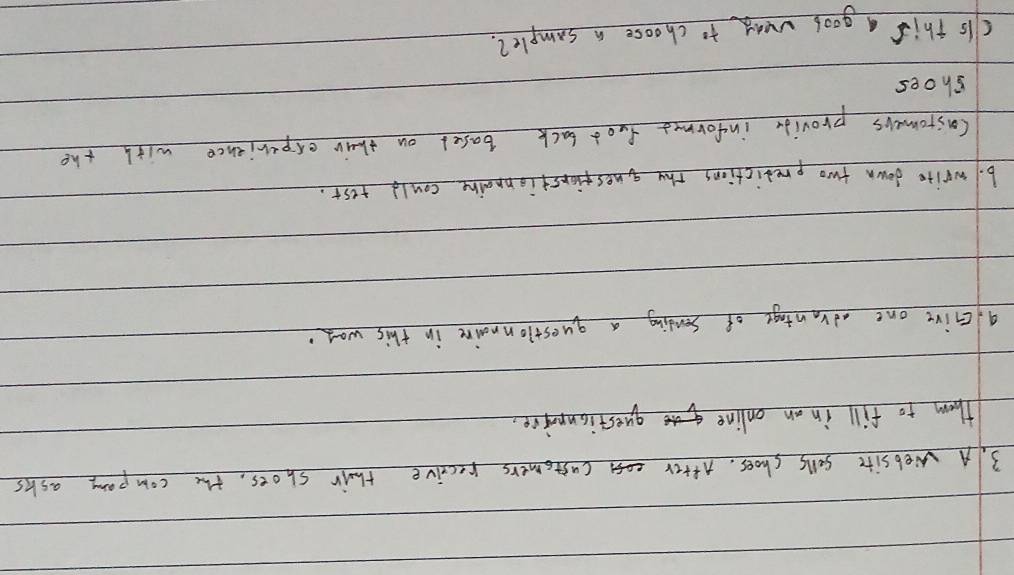 3. A website sells shoes. After cost customers receive their shoes, the company asks
them to fill in an online que questionnaire.
a. Give one advantage of sending a questionnaire in this way.
b. write down two predictions the questionstionnaire could test.
Customers provide informed feed back based on their experience with the
shoes
C Is this a good way to choose a sample?